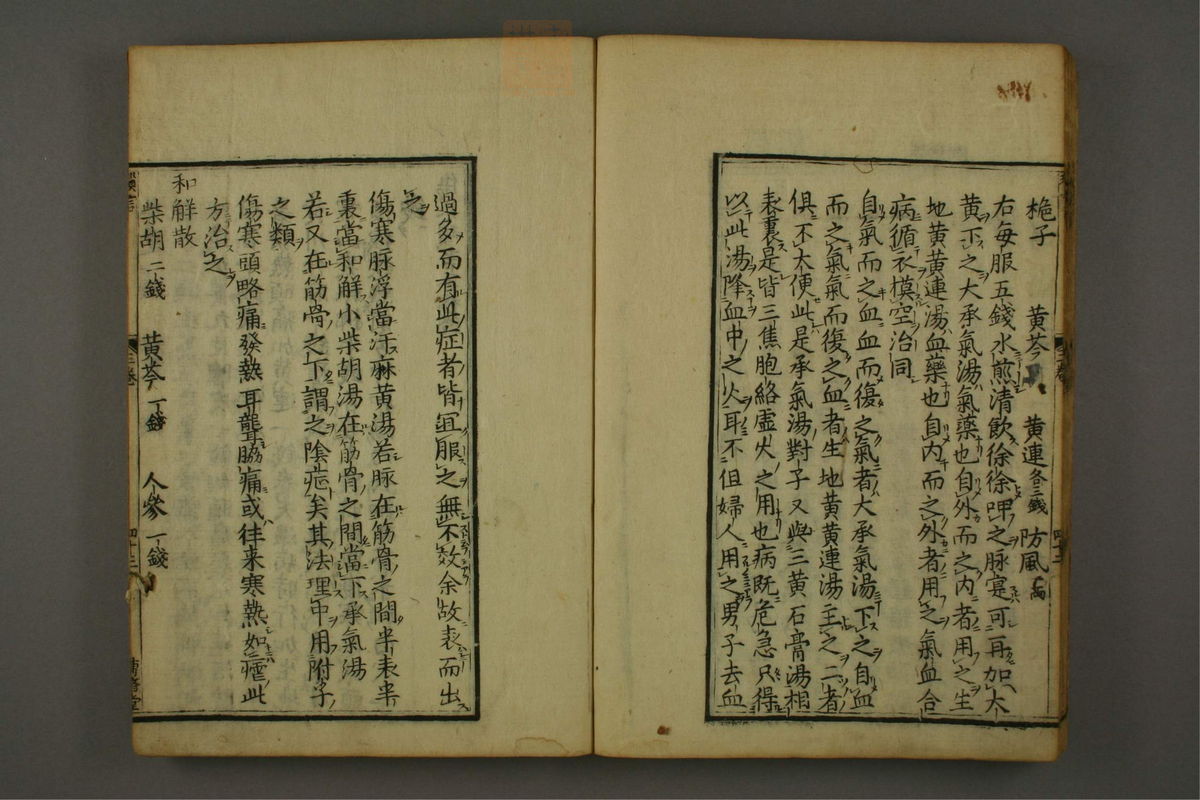 梔子 黄芩 黄連各三錢 防風一両
右毎服五錢水煎清飲徐徐呷之脉寔可再加大
黄下之大承氣湯氣藥也自外而之内者用之生
地黄黄連湯血藥也自内而之外者用之氣血合
病循衣摸空治同
自氣而之血血而復之氣者大承氣湯下之自血
而之氣氣而復之血者生地黄黄連湯主之二者
俱不大便此是承氣湯對子又與三黄石膏湯相
表裏是皆三焦胞絡虚火之用也病既危急只得
以此湯降血中之火耳不但婦人用之男子去血
過多而有此症者皆冝服之無不效余故表而出
之
傷寒脉浮當汗麻黄湯若脉在筋骨之間半表半
裏當和解小柴胡湯在筋骨之間當下承氣湯
若又在筋骨之下謂之陰症矣其法理中用附子
之類
傷寒頭略痛發熱耳聾脇痛或徃来寒熱如瘧此
方治之
和解散
柴胡二錢 黄芩一錢 人參一錢
三巻 四十三